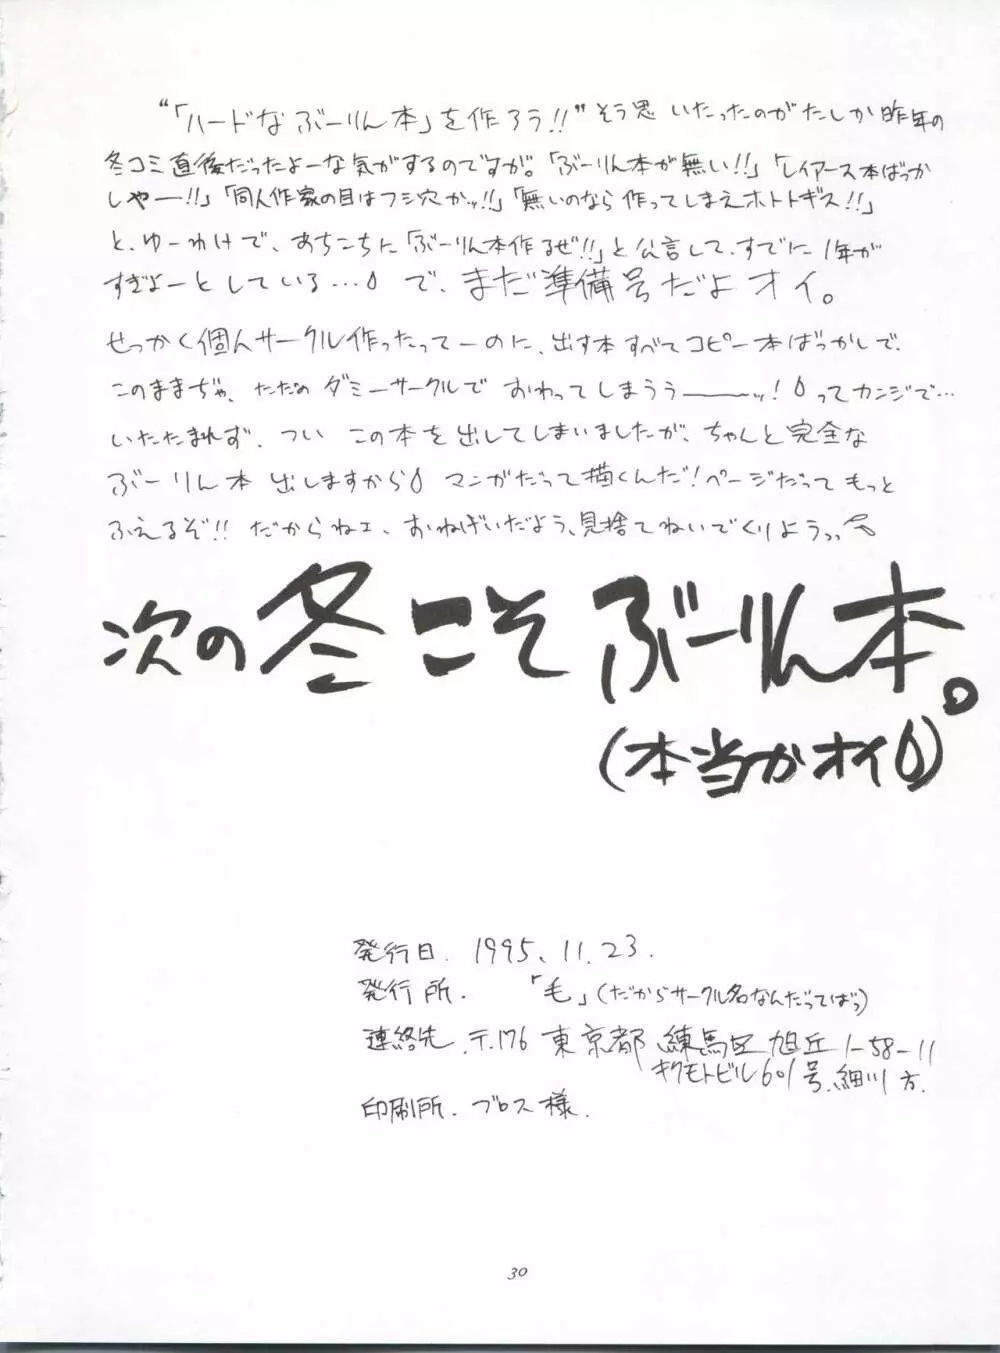 “「ハードなぶーりん本」を作ろう!!”そう思いたったのがたしか昨年の
冬コミ直後だったよーな気がするのですが。「ぶーりん本が無い!!」「レイアース本ばっか
しやー!!」「同人作家の目はフシ穴かッ!!」「無いのなら作ってしまえホトトギス!!」
と、ゆーわけで、あちこちに「ぶーりん本作るぜ!!」と公言して、すでに1年が
すぎよーとしている…で、まだ準備号だよオイ。
せっかく個人サークル作ったってーのに、出す本すべてコピー本ばっかしで、
このままぢゃ、ただのダミーサークルでおわってしまううーーッ!ってカンジで…
いたたまれず、ついこの本を出してしまいましたが、ちゃんと完全な
ぶーりん本出しますから マンガだって描くんだ!ページだってもっと
ふえるぞ!!だからねェ、おねげいだよう、見捨てねいでくりようっ、
次の冬こそぶーりん本。
(本当かオイ)
発行日. 1995、11.23.
発行所. 「毛」(だからサークル名なんだってばっ)
連絡先.〒176 東京都練馬区旭丘1-58-11
キクモトビル601号.細川方.
印刷所. ブロス様.
30